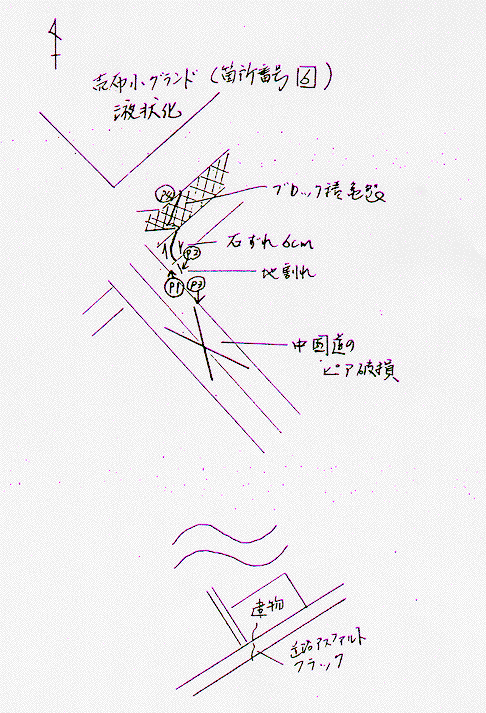 売布小グランド (箇所番号 6)
液状化
P4
ブロック積亀裂
右ずれ 6cm
P2
地割れ
P1
P3
中国道の
ピア破損
建物
道路アスファルト
クラック